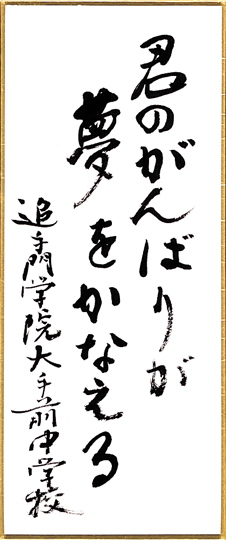 君のがんばりが
夢をかなえる
追手門学院大手前中学校